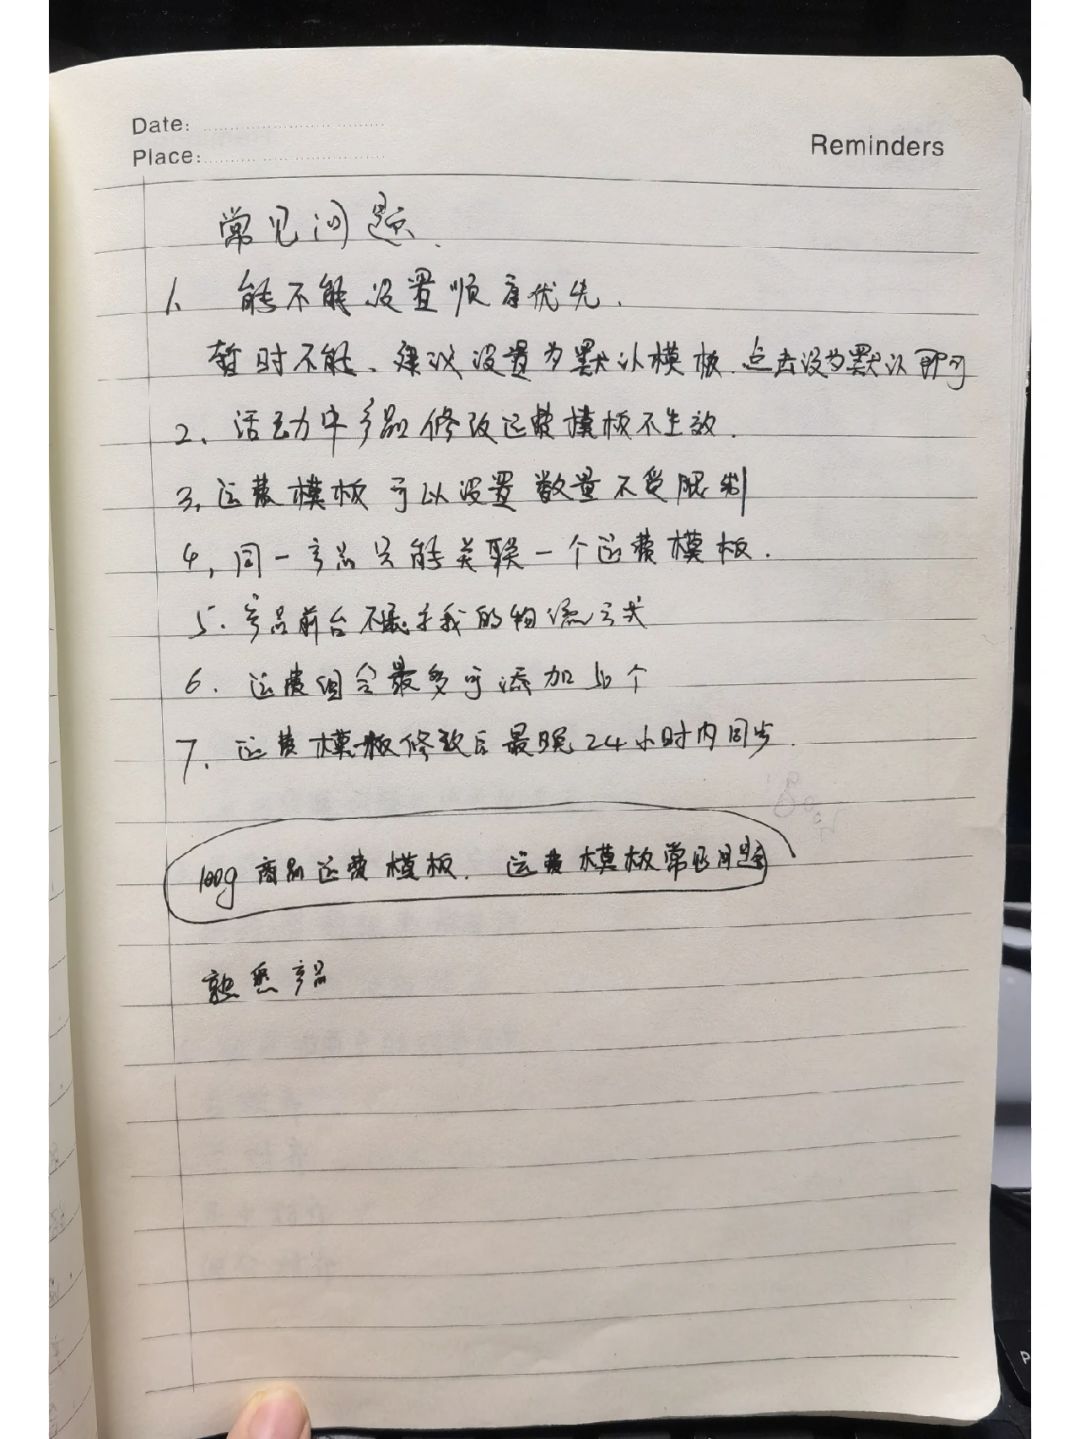 Date:
Place:
Reminders
常见问题.
1、能不能设置顺序优先.
暂时不能、建议设置为默认模板.点击设为默认即可
2、活动中产品修改运费模板不生效.
3、运费模板可以设置数量不受限制
4、同一产品只能关联一个运费模板.
5.产品前台不展示我的物流方式
6.运费组合最多可添加50个
7.运费模板修改后最晚24小时内同步.
100g商品运费模板.运费模板常见问题
熟悉产品